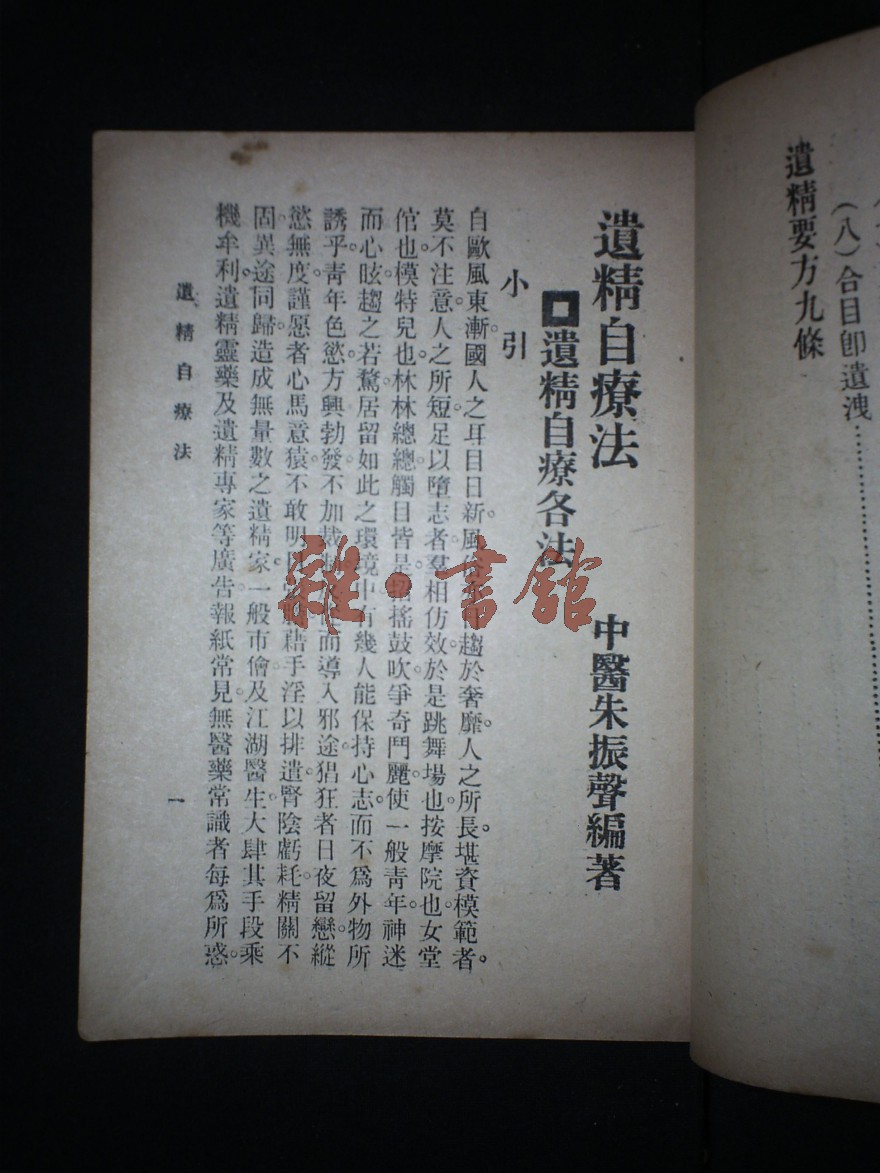 (八)合目卽遺洩
遺精要方九條
遺精自療法
中醫朱振聲編著
遺精自療各法
小引
自歐風東漸。國人之耳目日新。風趨於奢靡。人之所長。堪資模範者。
莫不注意。人之所短。足以墮志者。羣相仿效。於是跳舞場也。按摩院也。女堂
倌也。模特兒也。林林總總。觸目皆是。招搖鼓吹。爭奇鬥麗。使一般靑年。神迷
而心眩。趨之若鶩。居留如此之環境中。有幾人能保持心志。而不爲外物所
誘乎。靑年色慾方興。勃發不加裁而導入邪途。猖狂者日夜留戀。縱
慾無度。謹愿者心馬意猿。不敢明目藉手淫以排遣。腎陰虧耗。精關不
固。異途同歸。造成無量數之遺精家。一般市儈及江湖醫生。大肆其手段。乘
機牟利。遺精靈藥及遺精專家等廣告。報紙常見。無醫藥常識者。每爲所惑。
遺精自療法
一
雜·書館